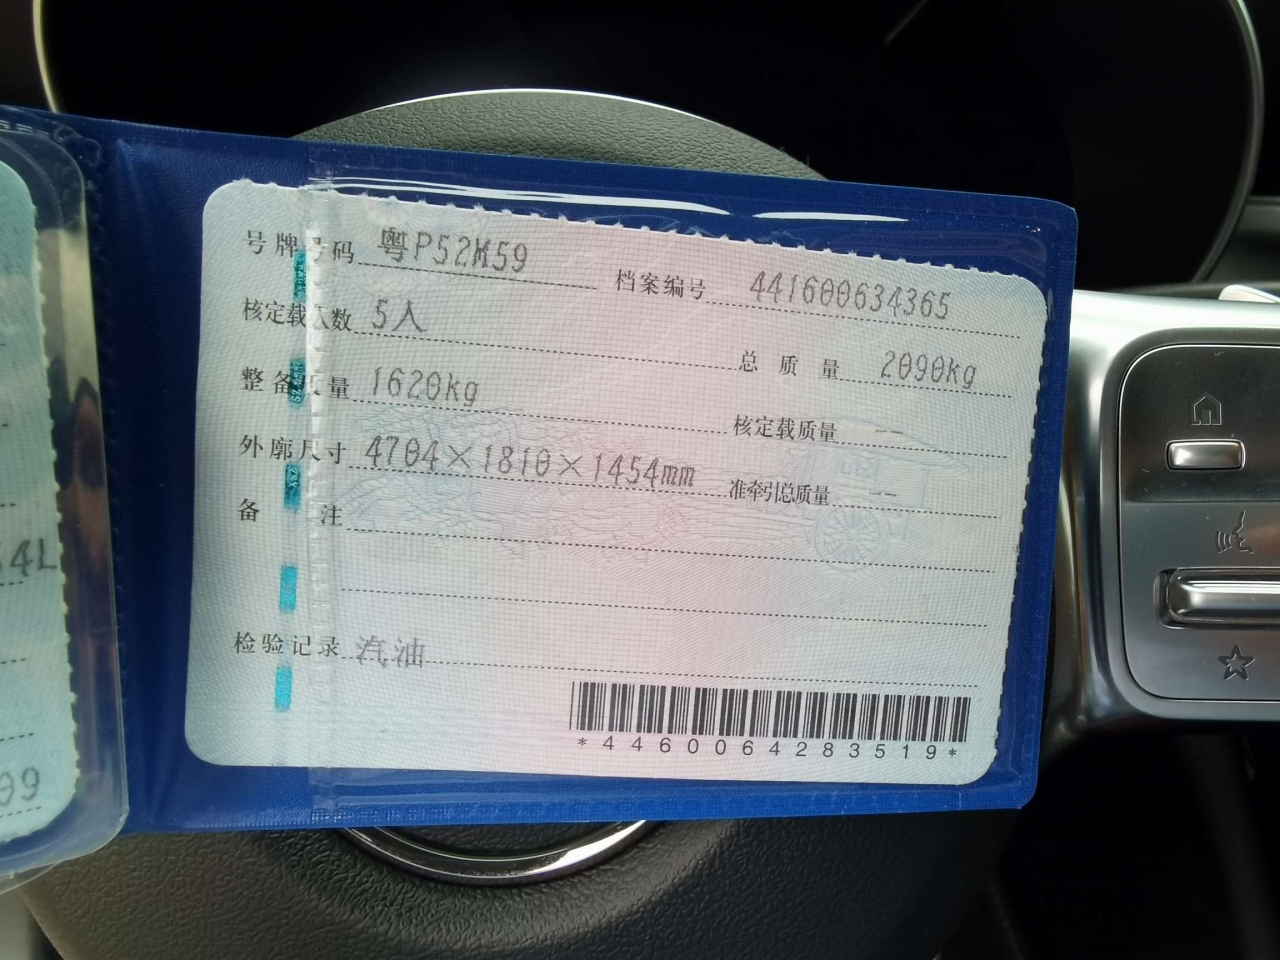 号牌号码 粤P52M59 档案编号 441600634365
核定载人数 5人 总质量 2090kg
整备质量 1620kg 核定载质量 --
外廓尺寸 4704×1810×1454mm 准牵引总质量 --
备注
检验记录 汽油
*4460064283519*
4L
09